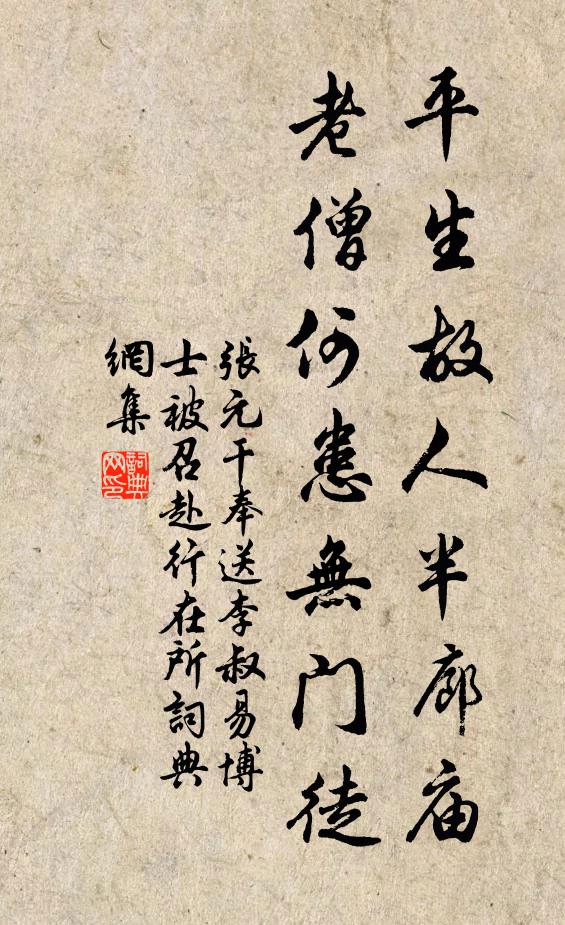 平生故人半廊庙
老僧何患無門徒
張元干奉送李叔易博
士被召赴行在所詞典
網集
詞典網印